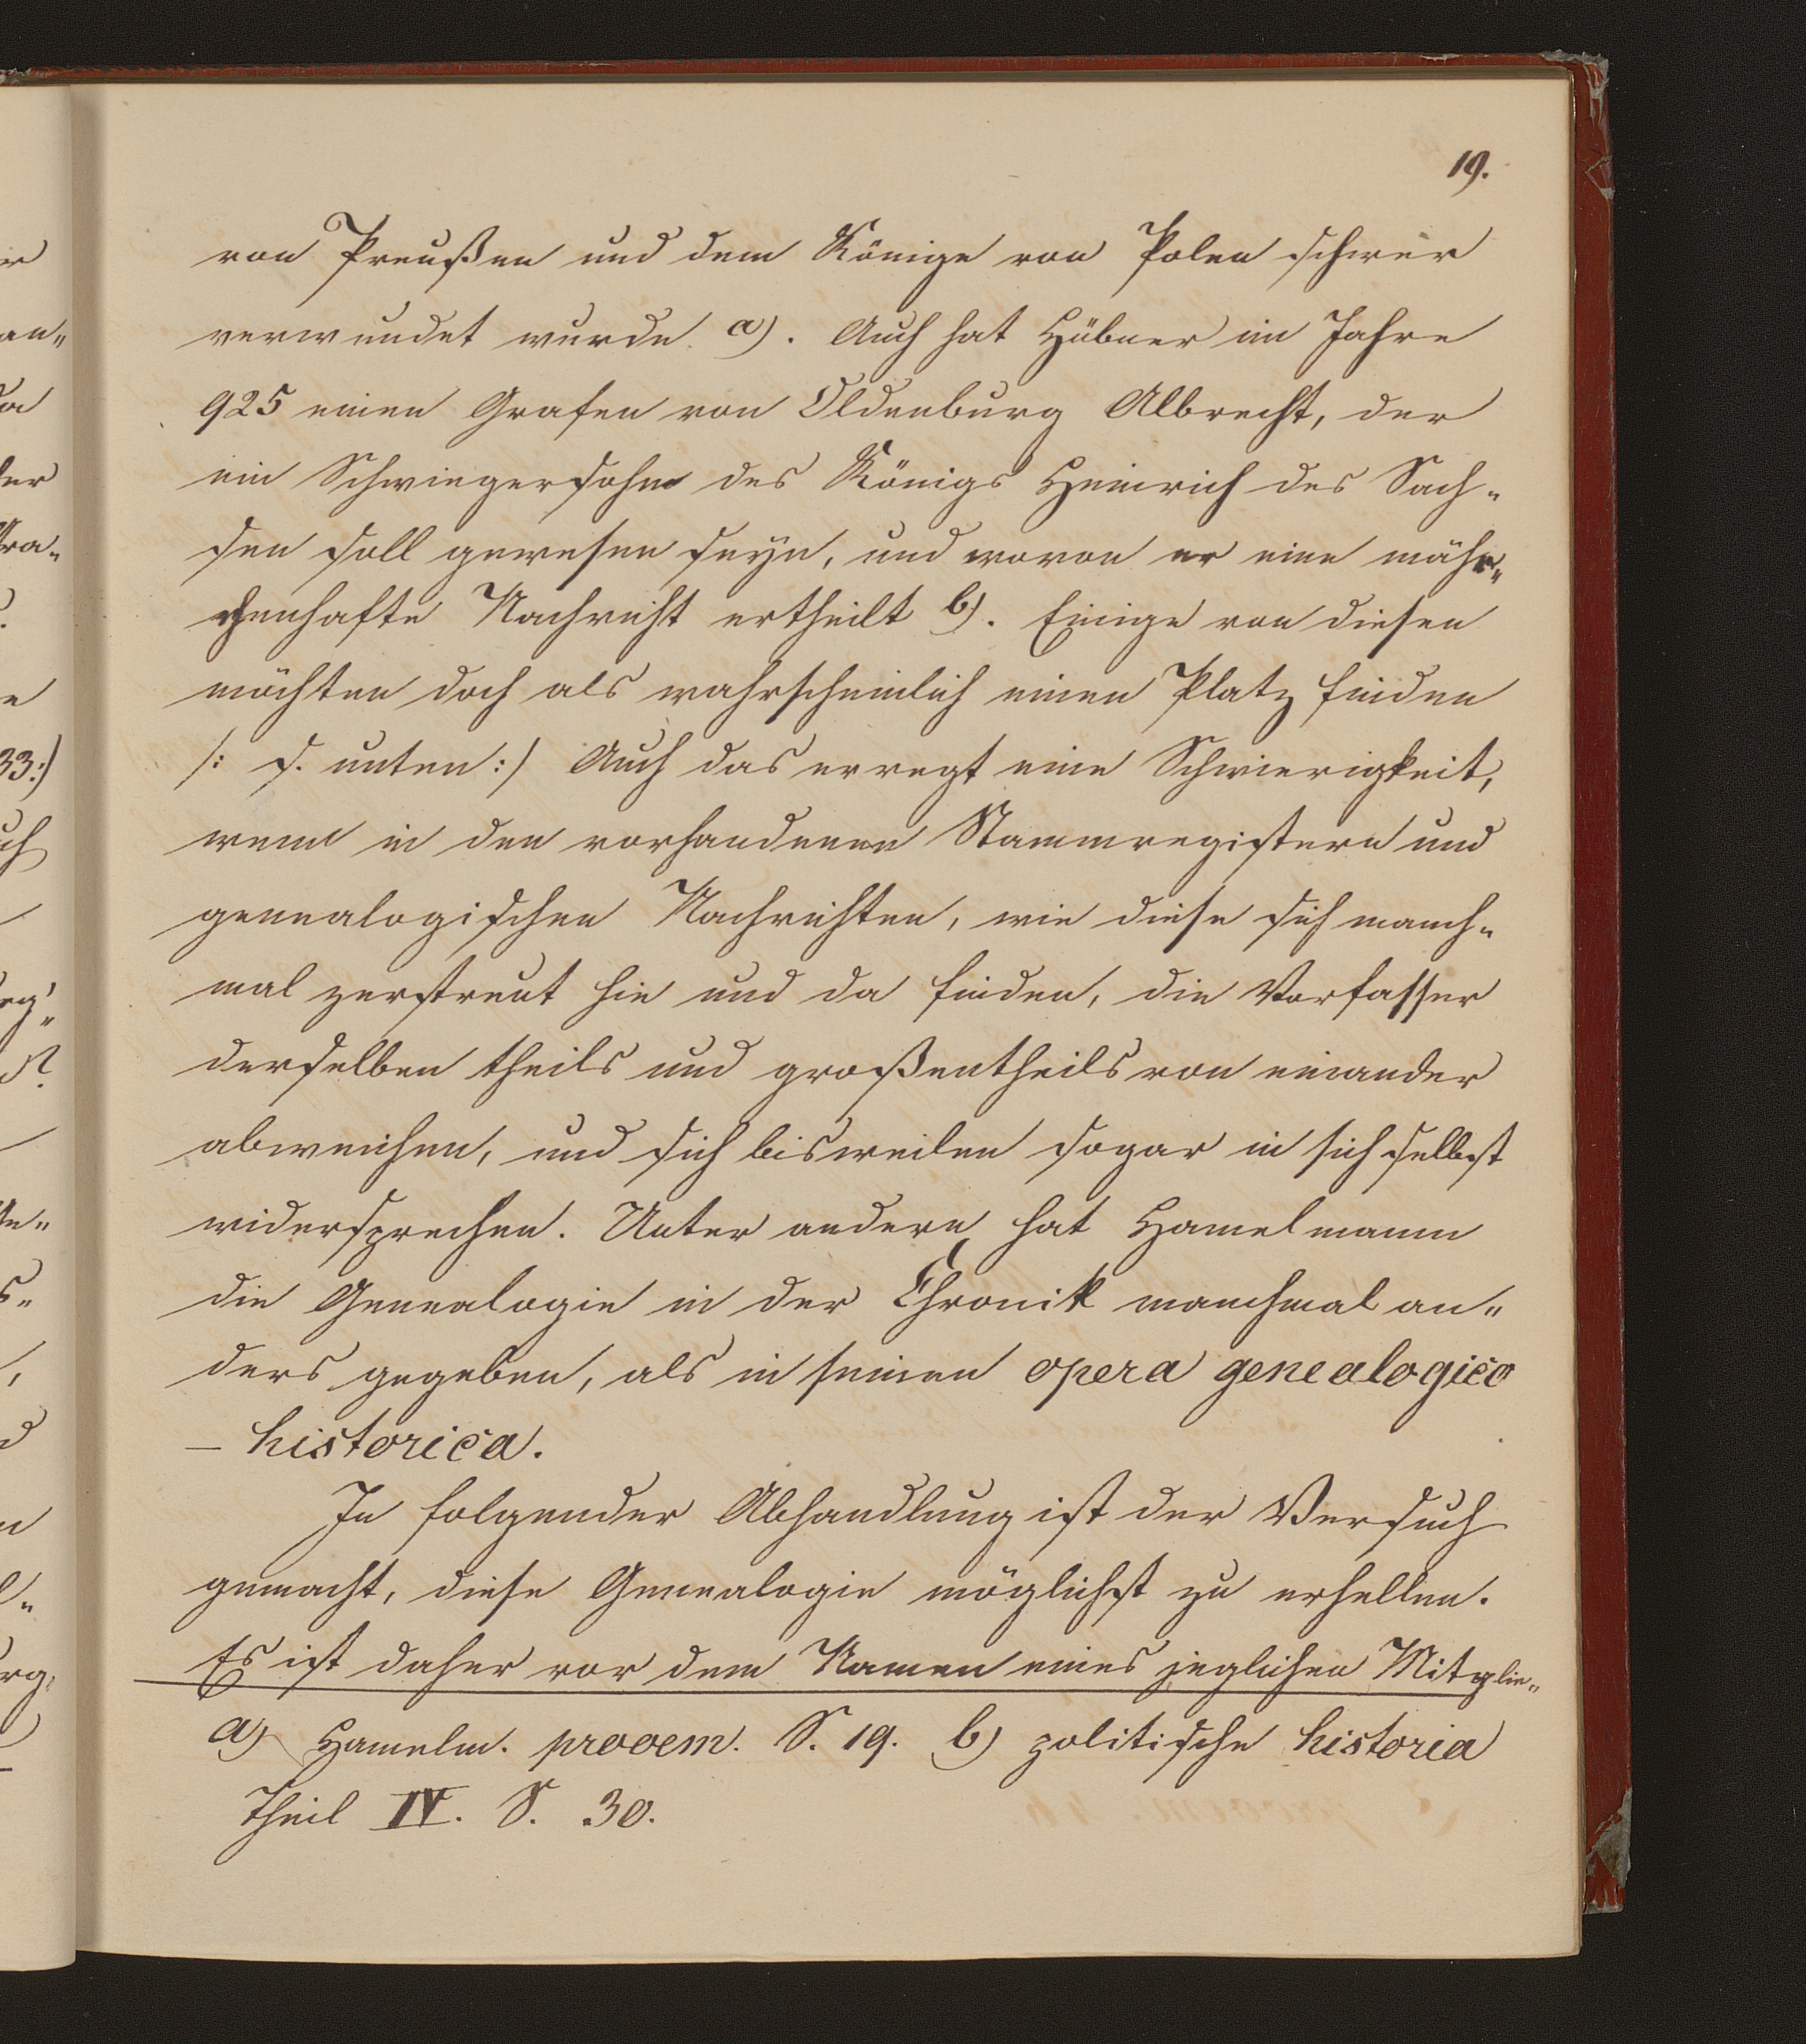 19.
von Preußen und dem Könige von Polen schwer
verwundet wurde a). Auch hat Hübner im Jahre
925 einen Grafen von Oldenburg Albrecht, der
ein Schwiegersohn des Königs Heinrich des Sach-
sen soll gewesen seyn, und wovon er eine mähr-
chenhafte Nachricht ertheilt b). Einige von diesen
möchten doch als wahrscheinlich einen Platz finden
/: s. unten :/ Auch das erregt eine Schwierigkeit,
wenn in den vorhandenen Stammregistern und
genealogischen Nachrichten, wie diese sich manch-
mal zerstreut hie und da finden, die Verfasser
derselben theils und großentheils von einander
abweichen, und sich bisweilen sogar in sich selbst
widersprechen. Unter andern hat Hamelmann
die Genealogie in der Chronik manchmal an-
ders gegeben, als in seinen opera genealogico
– historica.
In folgender Abhandlung ist der Versuch
gemacht, diese Genealogie möglichst zu erhellen.
Es ist daher vor dem Namen eines jeglichen Mitglie-
a) Hamelm. prooem. S. 19. b) politische historia
Theil IV. S. 30.